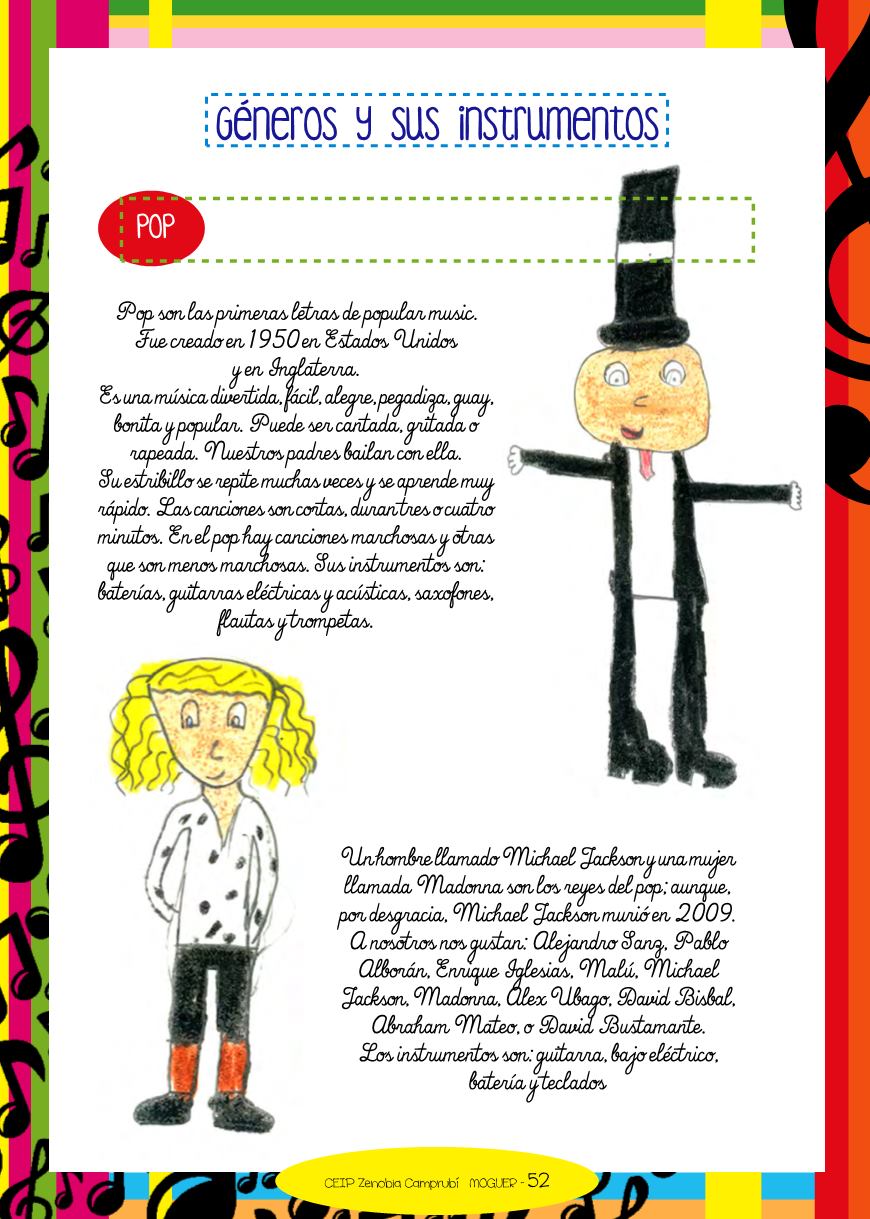 Géneros y sus instrumentos
POP
Pop son las primeras letras de popular music.
Fue creado en 1950 en Estados Unidos
y en Inglaterra.
Es una música divertida, fácil, alegre, pegadiza, guay,
bonita y popular. Puede ser cantada, gritada o
rapeada. Nuestros padres bailan con ella.
Su estribillo se repite muchas veces y se aprende muy
rápido. Las canciones son cortas, duran tres o cuatro
minutos. En el pop hay canciones marchosas y otras
que son menos marchosas. Sus instrumentos son:
baterías, guitarras eléctricas y acústicas, saxofones,
flautas y trompetas.
Un hombre llamado Michael Jackson y una mujer
llamada Madonna son los reyes del pop; aunque,
por desgracia, Michael Jackson murió en 2009.
A nosotros nos gustan: Alejandro Sanz, Pablo
Alborán, Enrique Iglesias, Malú, Michael
Jackson, Madonna, Álex Ubago, David Bisbal,
Abraham Mateo, o David Bustamante.
Los instrumentos son: guitarra, bajo eléctrico,
batería y teclados
CEIP Zenobia Camprubí MOGUER - 52